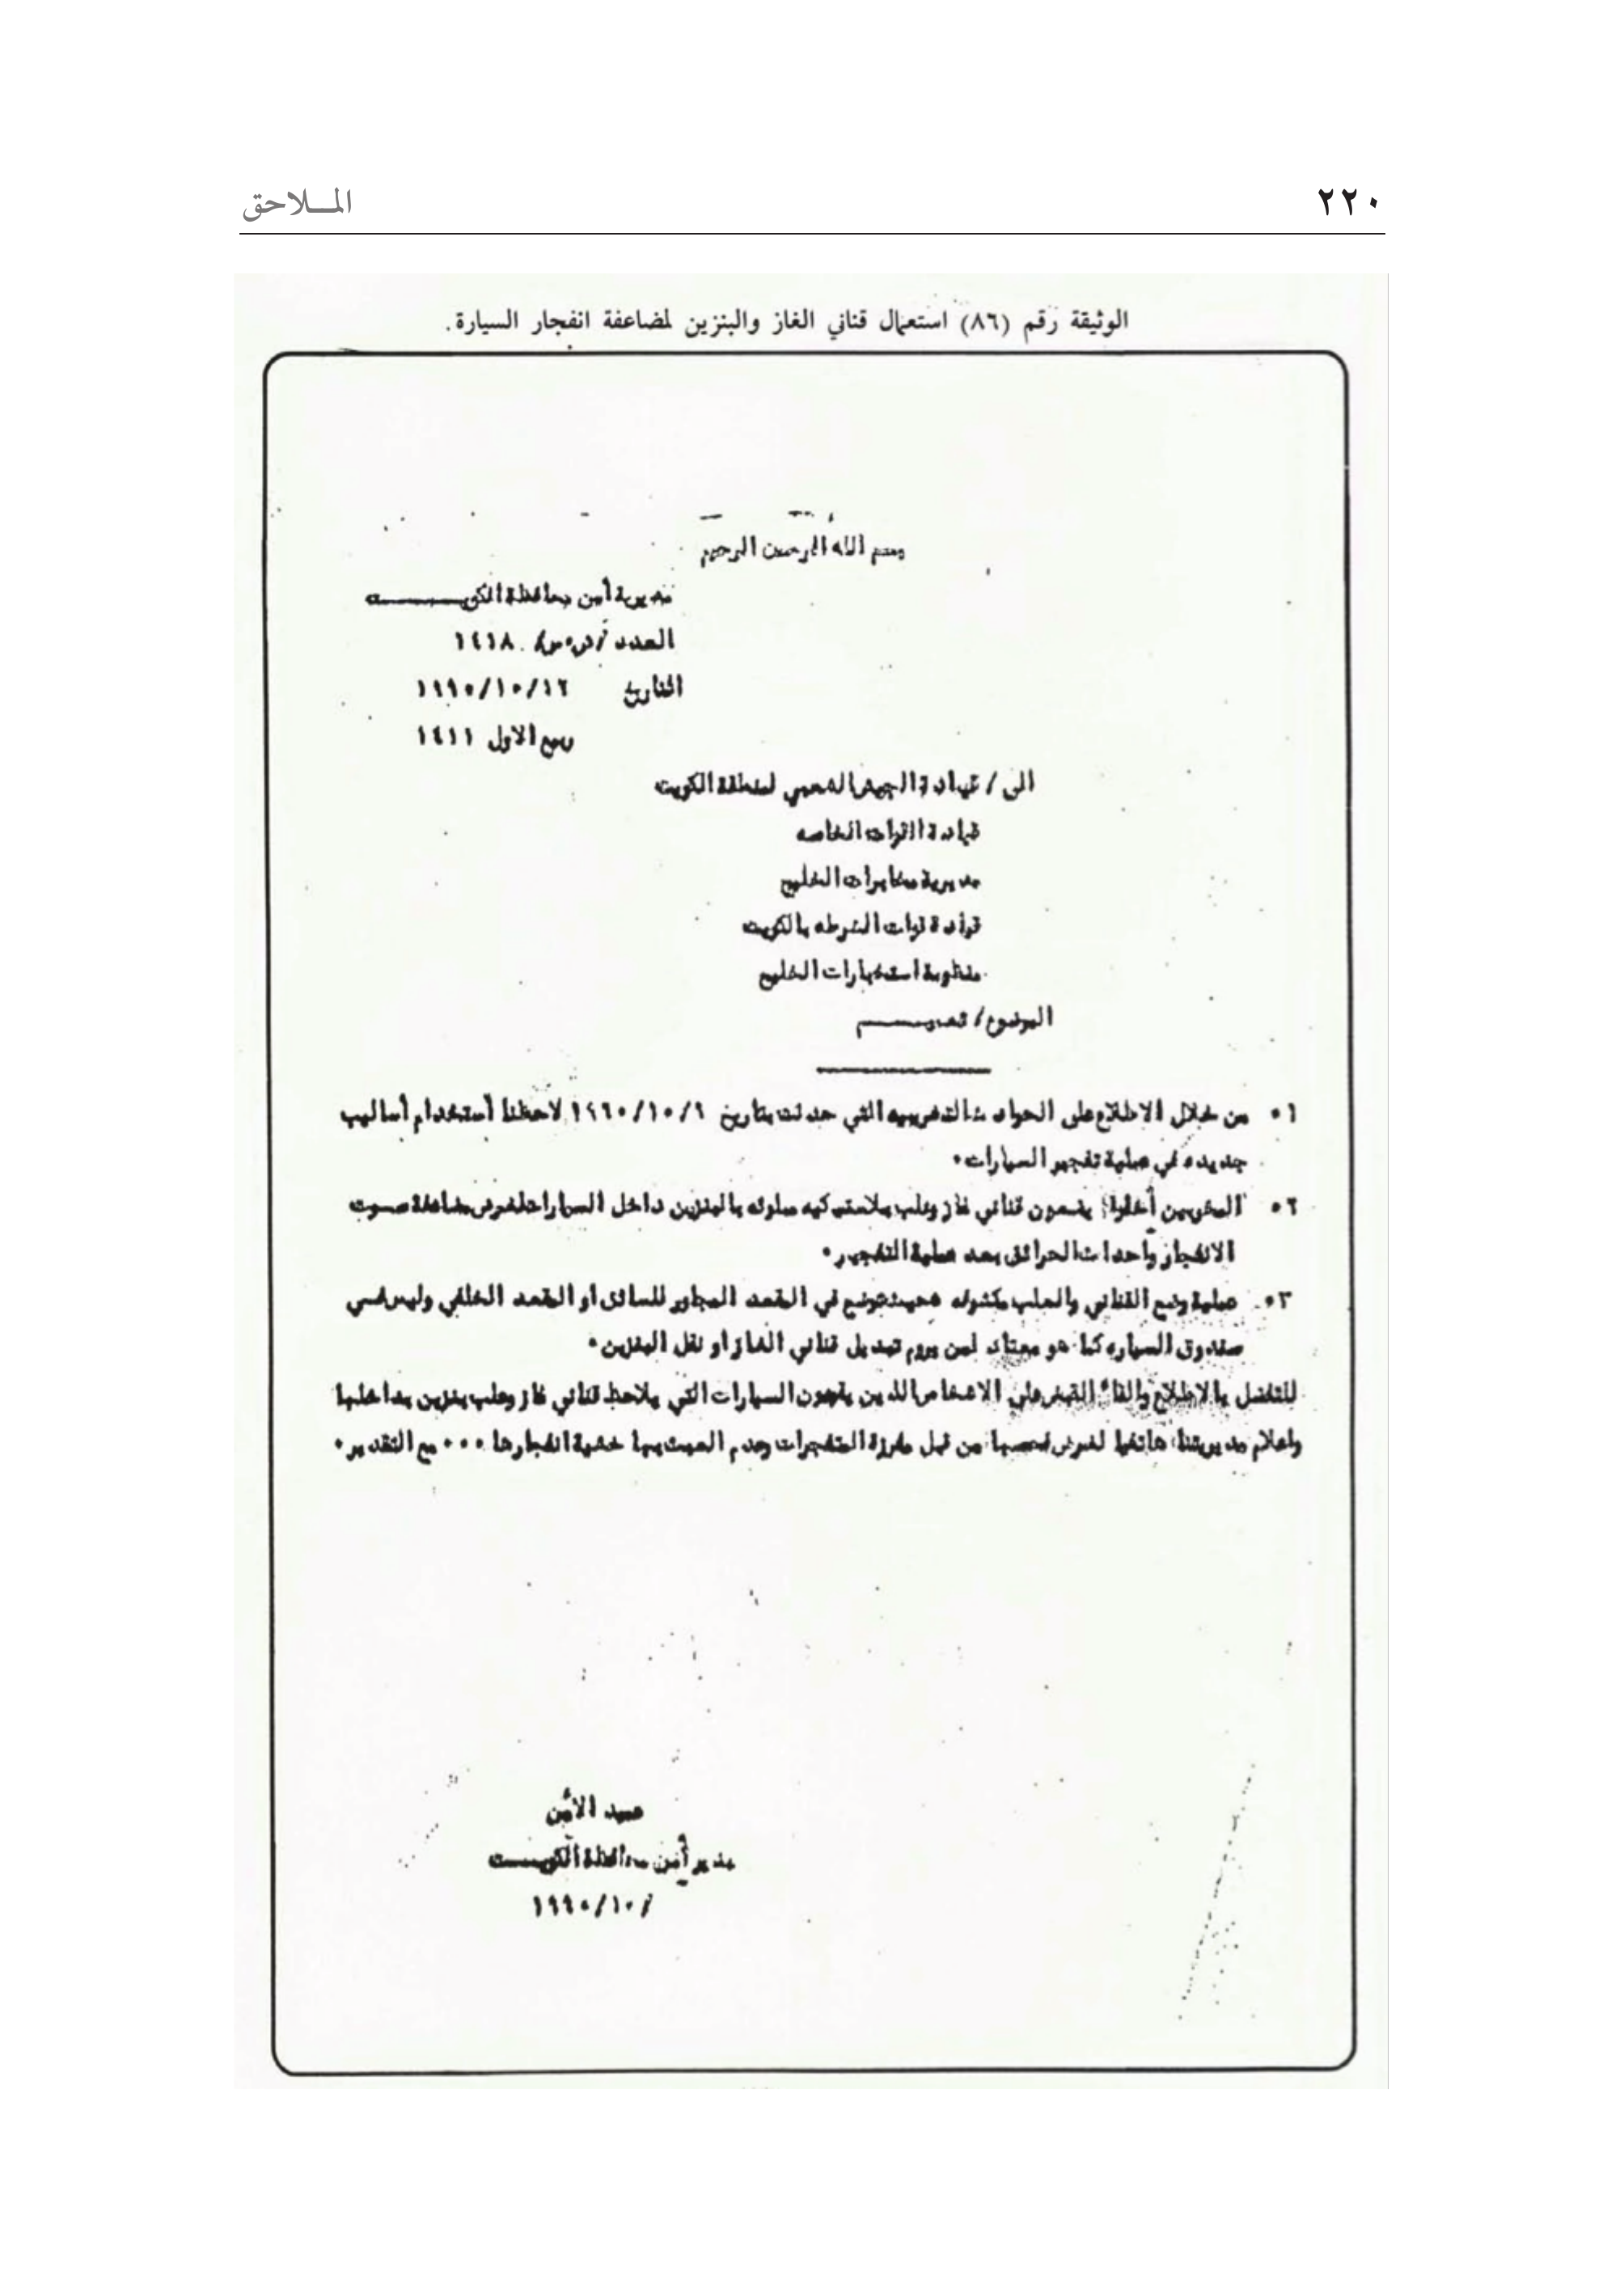 ٢٢٠
الملاحق
الوثيقة رقم (٨٦) استعمال قناني الغاز والبنزين لمضاعفة انفجار السيارة.
بسم الله الرحمن الرحيم
مديرية أمن محافظة الكويت
العدد / س٠ / ١٤١٨
التاريخ ١٩٩٠/١٠/١٢
ربيع الاول ١٤١١
الى / قيادة الجيش الشعبي لمنطقة الكويت
قيادة القوات الخاصه
مديرية مخابرات الخليج
قيادة قوات الشرطه بالكويت
منظومة استخبارات الخليج
الموضوع / تعميم
١٠ من خلال الاطلاع على الحوادث التخريبيه التي حدثت بتاريخ ١٩٩٠/١٠/٩ لاحظنا أستخدام أساليب
جديده في عملية تفجير السيارات٠
٢٠ المخربين أخذوا يضعون قناني غاز وعلب بلاستيكيه مملوئه بالبنزين داخل السيارات لغرض مضاعفة صوت
الانفجار وأحداث الحرائق بعد عملية التفجير٠
٣٠ عملية وضع القناني والعلب مكشوفه بحيث توضع في المقعد المجاور للسائق او المقعد الخلفي وليس في
صندوق السياره كما هو معتاد لمن يروم تبديل قناني الغاز او نقل البنزين٠
للتفضل بالاطلاع والقاء القبض على الاشخاص الذين يقودون السيارات التي يلاحظ قناني غاز وعلب بنزين بداخلها
واعلام مديريتنا هاتفيا لغرض فحصها من قبل مفرزة المتفجرات وعدم العبث بها خشية انفجارها ٠٠٠ مع التقدير٠
عميد الأمن
مدير أمن محافظة الكويت
/ ١٩٩٠/١٠